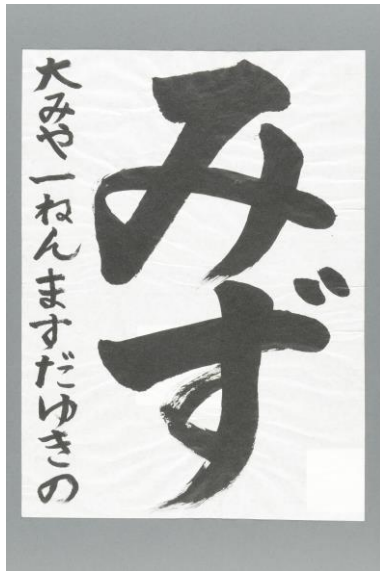 みず
大みや一ねんますだゆきの